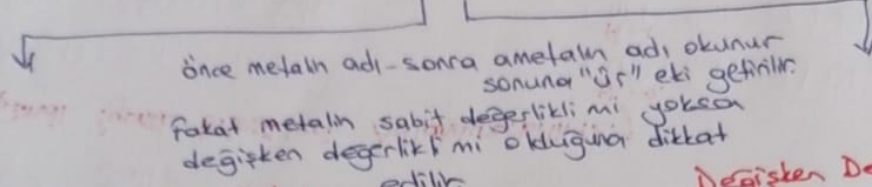 önce metalin adı - sonra ametalin adı okunur
sonuna "ür" eki getirilir.
fakat metalin sabit değerlikli mi yoksa
değişken değerlikli mi olduğuna dikkat
edilir
Değişken De